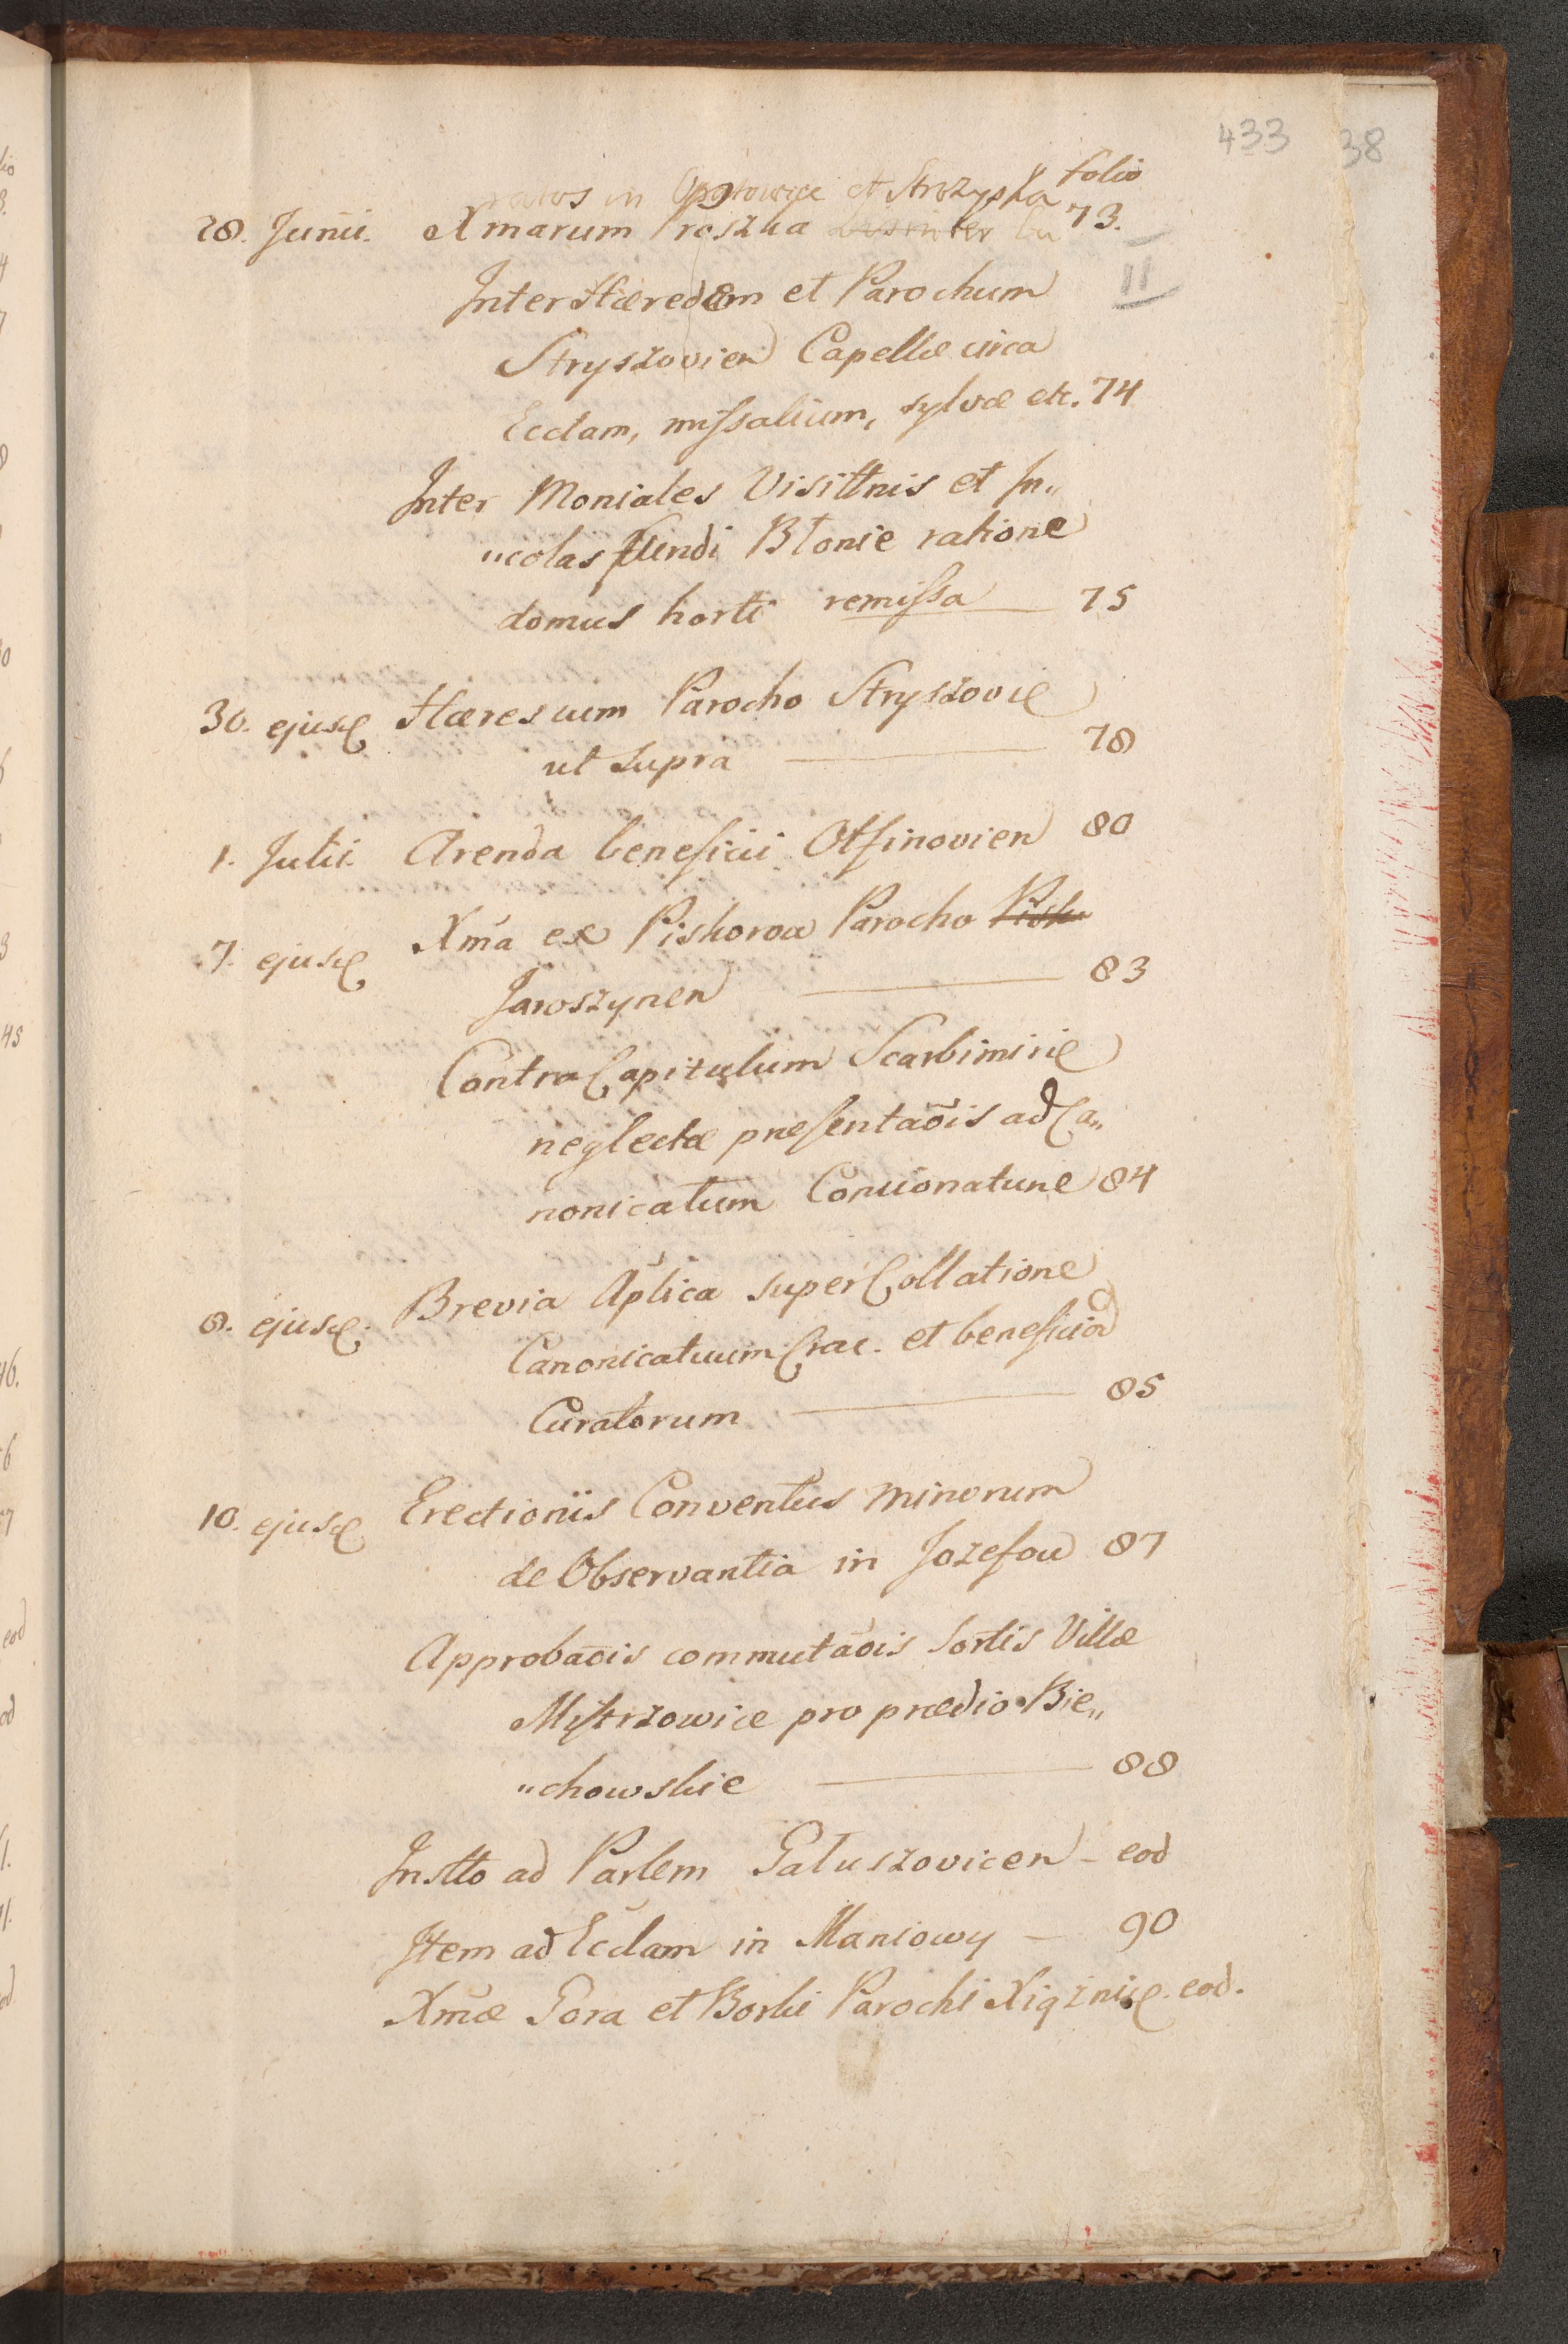 433 38
folio
in Opatowice et Strozyska
28. Junii. Xmarum Proszua 73.
II
Inter Hæredem et Parochum
Stryszovien Capellæ circa
Ecclam, missalium, sylvæ etc. 74
Inter Moniales Visittnis et In„
„colas fundi Błonie ratione
domus horti remissa 75
30. ejusd Hæres cum Parocho Stryszovie
ut supra 78
1. Julii. Arenda beneficii Otfinovien 80
7. ejusd Xma ex Piskorow Parocho Pisko
Jaroszynen 83
Contra Capitulum Scarbimirie
neglectæ præsentaõis ad Ca„
nonicatum Concionaturæ 84
8. ejusd. Brevia Aplica super Collatione
Canonicatuum Crac. et beneficior
Curatorum 85
10. ejusd Erectionis Conventus minorum
de Observantia in Jozefow 87
Approbaõis commutaõis sortis Villæ
Mistrzowice pro prædio Bie„
„chowskie 88
Instto ad Parlem Gałuszovicen - eod
Item ad Ecclam in Maniowy - 90
Xmæ Gora et Borki Parochi Xiążnice. eod.